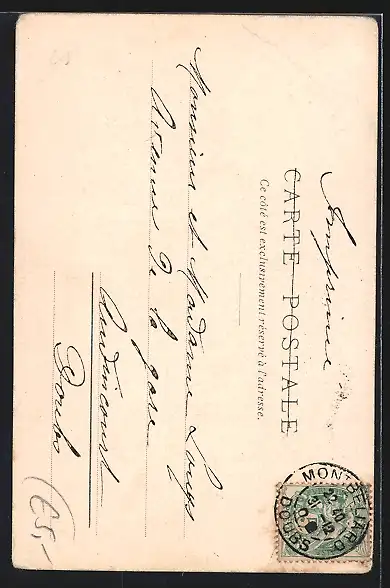 Imprimé
CARTE POSTALE
Ce côté est exclusivement réservé à l'adresse.
Monsieur et Madame Louys
Avenue de la gare
Audincourt
Doubs
MONTBELIARD
DOUBS
65,-